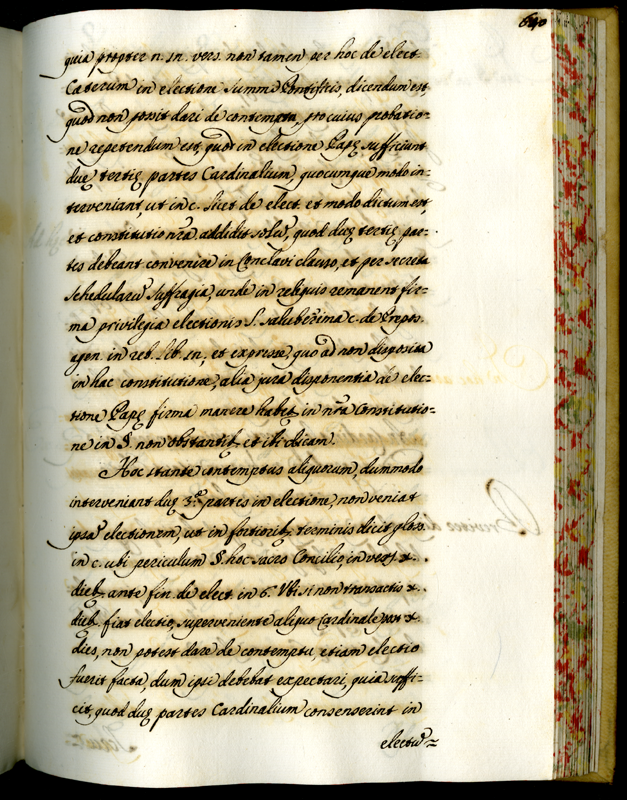 640
quia propter n. sn. vers. non tamen per hoc de elect.
Cæterum in electione summi Pontificis, dicendum est
quod non possit dari de contemptu, pro cuius probatio=
ne repetendum est, quod in electione Papę sufficiunt
duę tertię partes Cardinalium quocumque modo in=
terveniant, ut in c. licet de elect. et modo dictum est,
et constitutio nr̃a addidit solũ, quod duę tertię par=
tes debeant convenire in Conclavi clauso, et per secreta
schedularũ suffragia, unde in reliquis remanent fir=
ma privilegia electionis
agen. in reb. et expresse, quo ad non disposita
in hac constitutione, alia jura disponentia de elec=
tione Papę firma manere habet in nr̃a Constitutio=
ne in §. non obstantib. et ibi dicam.
Hoc stante contemptus aliquorum, dummodo
interveniant duę 3.ę partes in electione, non veniat
ipsã electionem, ut in fortiorib. terminis dicit glos.
in c. ubi periculum §. hoc sacro Concilio, in vers. x.
dieb. ante fin. de elect. in 6.º Ubi si non transactis x.
dieb. fiat electio, superveniente aliquo Cardinale post x.
dies, non potest dare de contemptu, etiam electio
fuerit facta, dum ipsi debebat expectari, quia suffi=
cit, quod duę partes Cardinalium consenserint in
electũ=